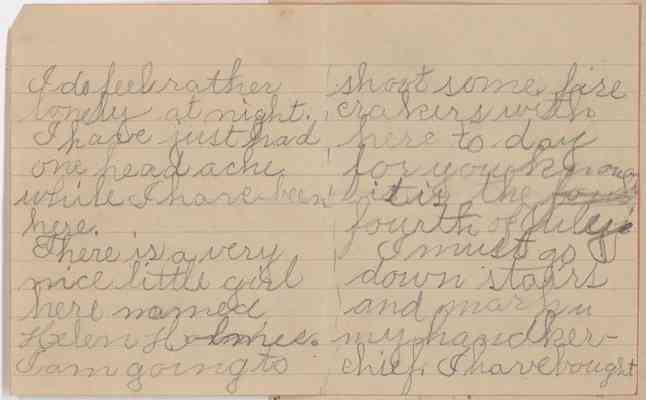 I do feel rather
lonely at night.
I have just had
one head ache
while I have been
here.
There is a very
nice little girl
here named
Helen Holmes.
I am going to
shoot some fire
crakers with
here to day
for you know
it is the
fourth of July
I must go
down stairs
and
my handker-
chief. I have bought